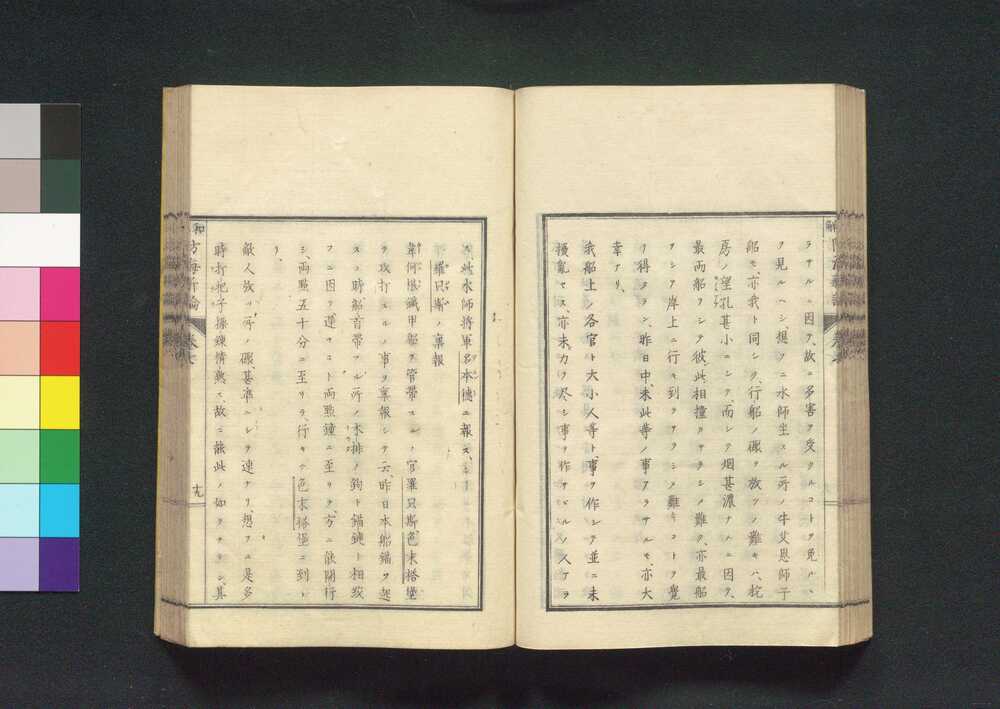 ラサルニ因ヲ、故ニ多害ヲ受クルコトヲ免ル、
ヲ見ルヘシ、想フニ水師坐スル所ノ牛艾恩師子
船モ、亦我ト同シク、行船ノ礮ヲ放ツノ難キハ、柁
房ノ望孔甚小ニシテ、而シテ烟甚濃ナルニ因ヲ、
最両船ヲシテ彼此相撞カサラシメ難ク、亦最船
ヲシテ岸上ニ行キ到ラサラシメ難キコトヲ覺
得タラン、昨日中、未此等ノ事アラサルモ、亦大
幸アリ、
我船上ノ各官ト大小人等ト、事ヲ作シテ並ニ未
擾亂セス、亦未力ヲ尽シ事ヲ作サヾルノ人アラ
ス、此水師將軍多本徳ニ報ス、
羅只斯ノ稟報
韋何恨鐵甲船ヲ管帶スルノ官羅只斯、色末搭堡
ヲ攻打スルノ事ヲ稟報シテ云、昨日本船錨ヲ起
スノ時、船首帶フル所ノ木排ノ鉤ト錨鏈ト相絞
フニ因ヲ遲ツコト両點鐘ニ至リテ、方ニ能開行
シ、両點五十分ニ至リテ行キテ色末搭堡ニ到レ
リ、
敵人放ツ所ノ礮、甚準ニシテ速ナリ、想フニ是多
時打靶子操練情熟ス、故ニ能此ノ如クナラン、其
和
方海新論
卷七
十九